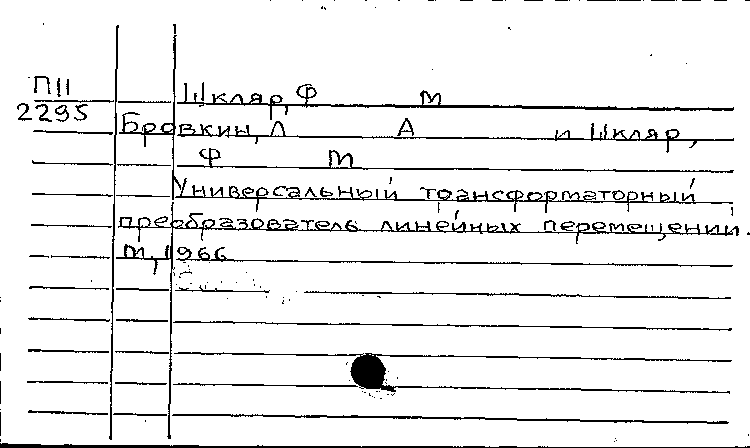 П11
2295
Шкляр, Ф М
Бровкин, Л А и Шкляр,
Ф М
Универсальный трансформаторный
преобразователь линейных перемещений.
М, 1966